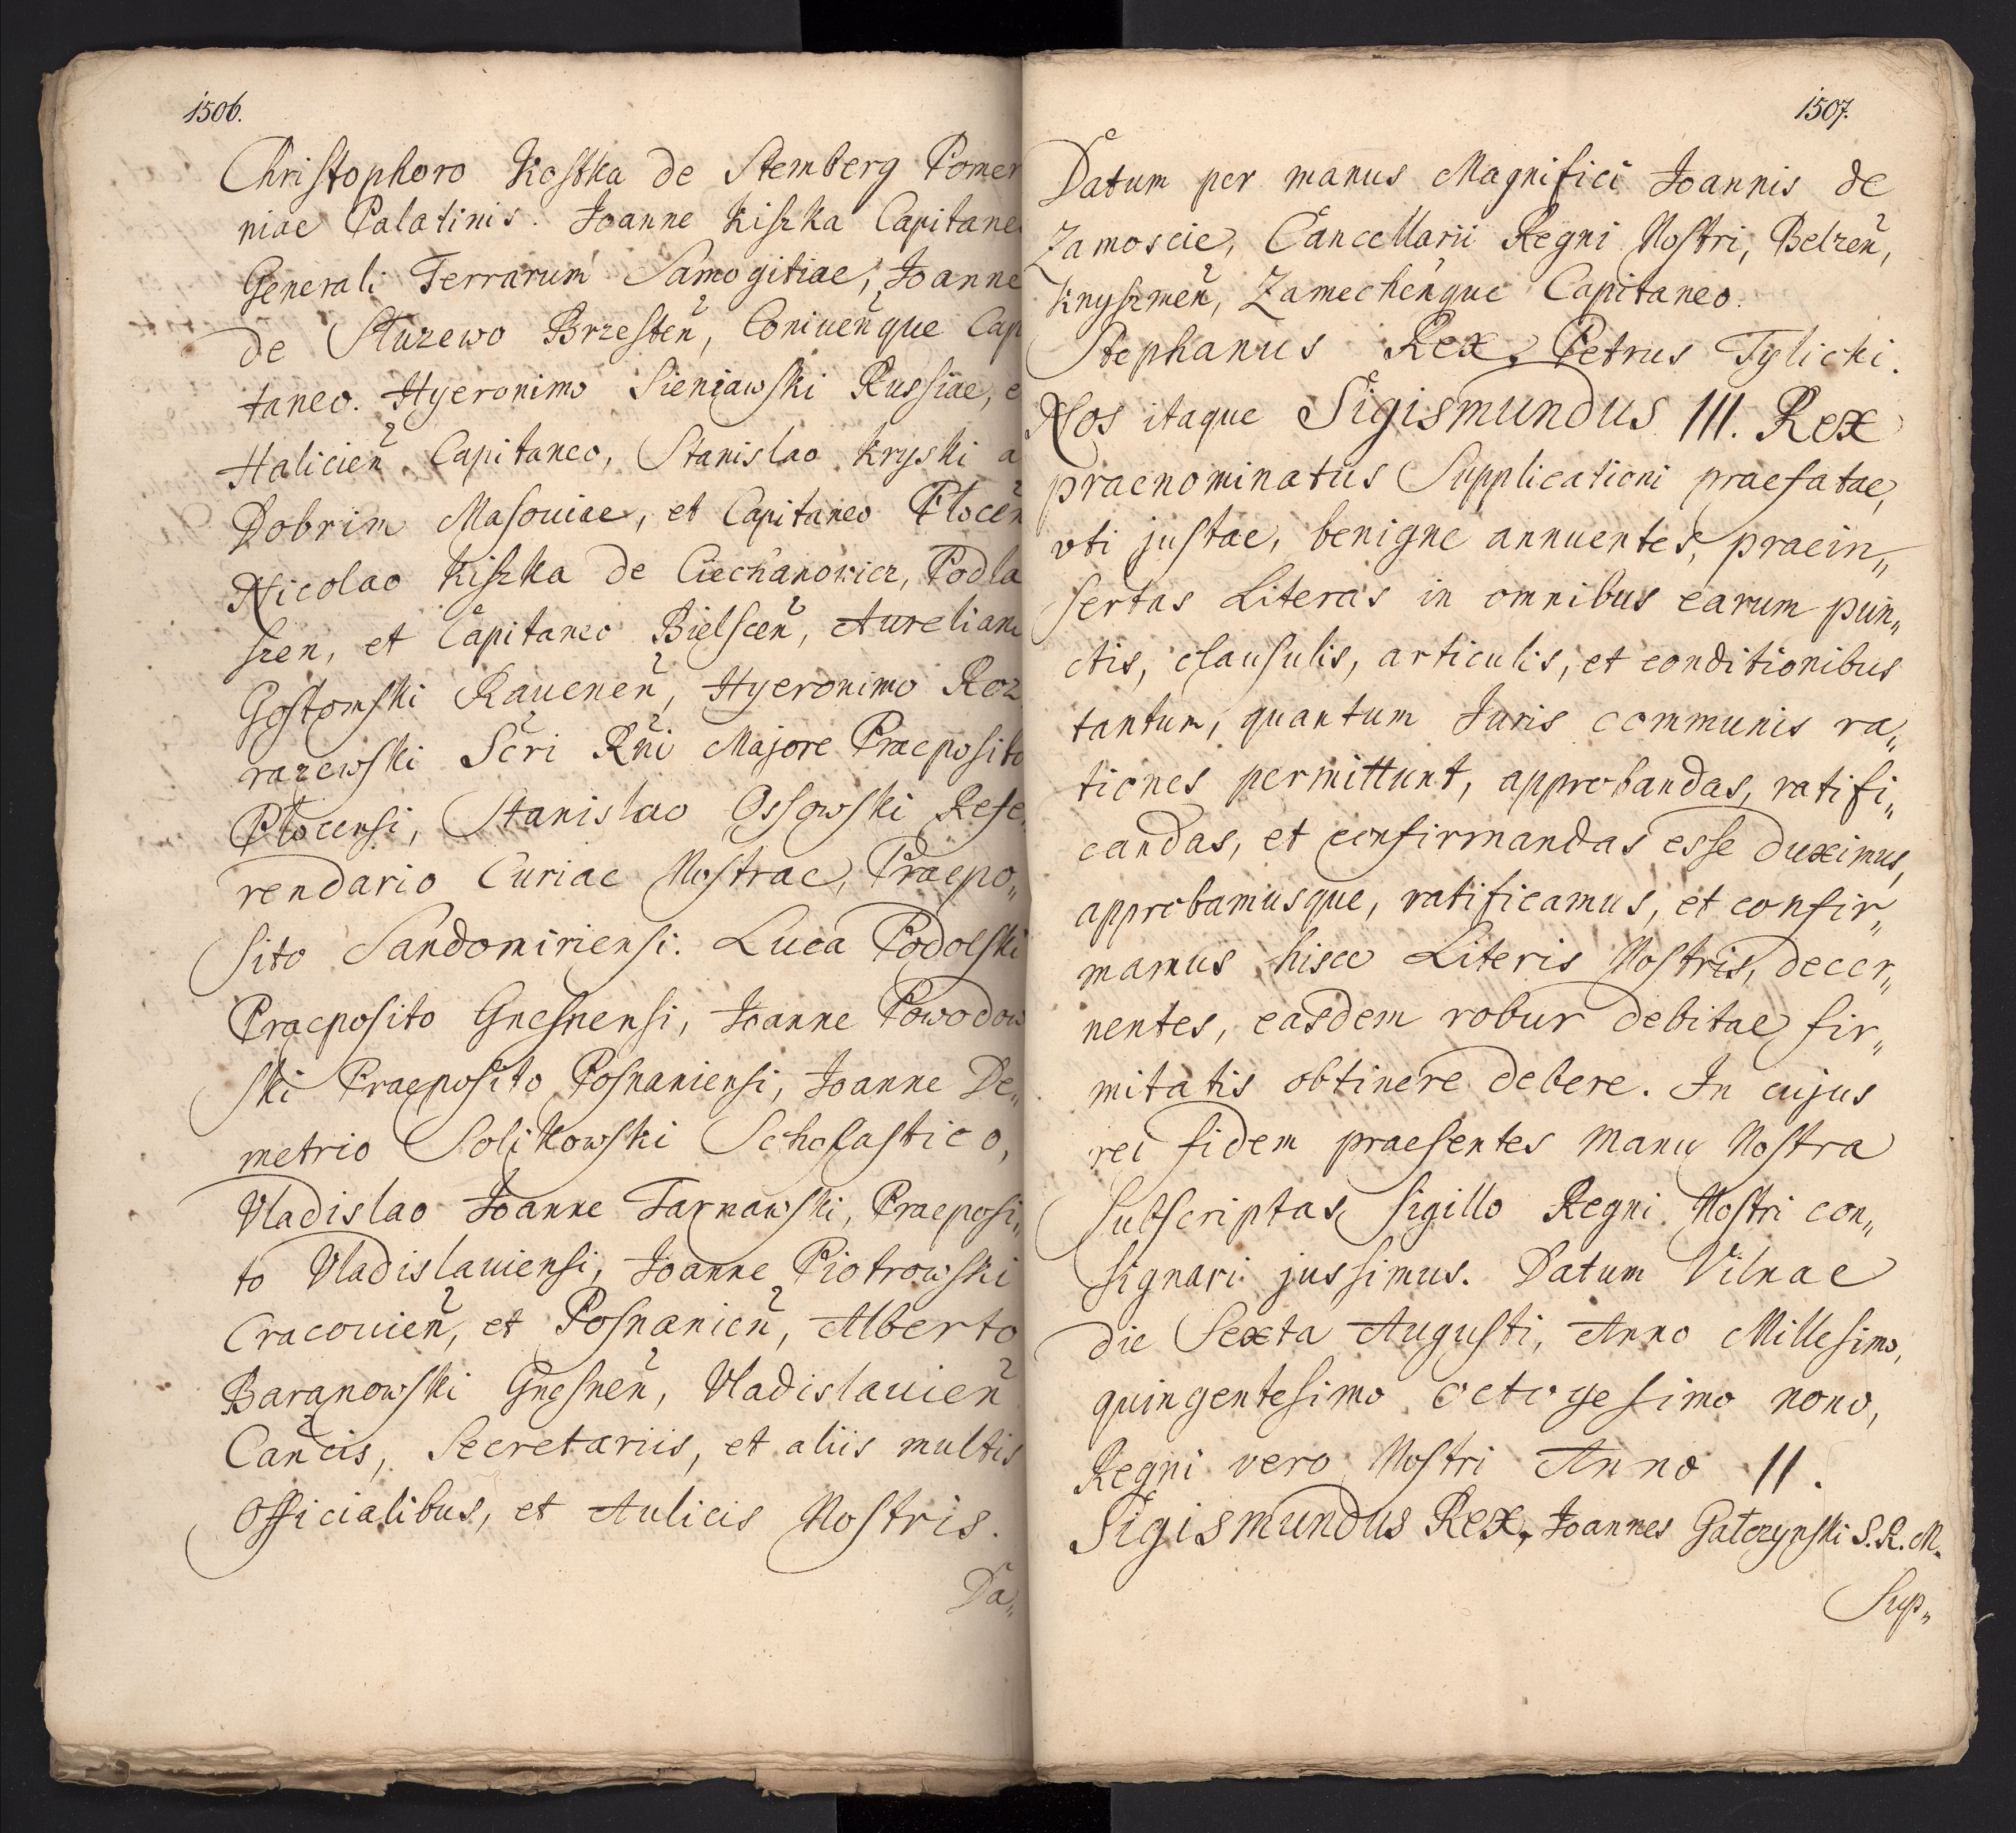 1506.
Christophoro Kostka de Stemberg Pomer
niae Palatinis. Joanne Kiszka Capitane
Generali Terrarum Samogitiae, Joanne
de Służewo Brzesteñ, Coniueñque Cap
taneo. Hyeronimo Sieniawski Russiae, e
Halicieñ Capitaneo, Stanislao Kryski a
Dobrim Masouiae, et Capitaneo Płoceñ
Nicolao Kiszka de Ciechanowicz, Podla
szen, et Capitaneo Bielsceñ, Aureliano
Gostomski Raueneñ, Hyeronimo Roz
razewski Scri Rñi Majore Praeposito
Płocensi, Stanislao Ossowski Refe,
rendario Curiae Nostrae, Praepo„
sito Sandomiriensi. Luca Podolski
Praeposito Gnesnensi, Joanne Powodow
ski Praeposito Posnaniensi, Joanne De„
metrio Solikowski Scholastico,
Vladislao Joanne Tarnawski, Praeposi„
to Vladislauiensi, Joanne Piotrowski
Cracouieñ, et Posnanieñ, Alberto
Baranowski Gnesneñ, Vladislauieñ
Cañcis, Secretariis, et aliis multis
Officialibus, et Aulicis Nostris.
Da„
1507.
Datum per manus Magnifici Joannis de
Zamoscie, Cancellarii Regni Nostri, Belzeñ,
Knyszineñ, Zamecheñque Capitaneo.
Stephanus Rex, Petrus Tylicki.
Nos itaque Sigismundus III. Rex
praenominatus Supplicationi praefatae,
vti justae, benigne annuentes, praein„
sertas Literas in omnibus earum pun„
ctis, clausulis, articulis, et conditionibus
tantum, quantum Juris communis ra„
tiones permittunt, approbandas, ratifi„
candas, et confirmandas esse duximus,
approbamusque, ratificamus, et confir„
mamus hisce Literis Nostris, decer„
nentes, easdem robur debitae fir„
mitatis obtinere debere. In cujus
rei fidem praesentes Manu Nostra
Subscriptas, sigillo Regni Nostri con„
signari jussimus. Datum Vilnae
die Sexta Augusti, Anno Millesimo,
quingentesimo octogesimo nono,
Regni vero Nostri Anno II.
Sigismundus Rex, Joannes Gałczynski S. R. M.
Sup„